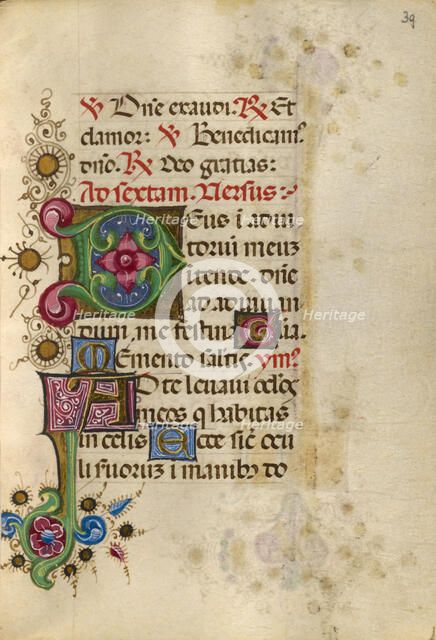 39
℣ Dñe exaudi. ℞ Et
clamor: ℣ Benedicam9
dño. ℞ Deo gratias:
Ad sextam. Versus:
Deus i adiu
toriũ meuz
itende. Dñe
ad adiuuan
dum me festina G ia.
Memento salutis. ymꝰ
Ad te leuaui oclos
meos q habitas
in celis Ecce sic ocu
li suoruz i manibꝰ do
Heritage
Heritage
Heritage
Heritage
Heritage
Heritage